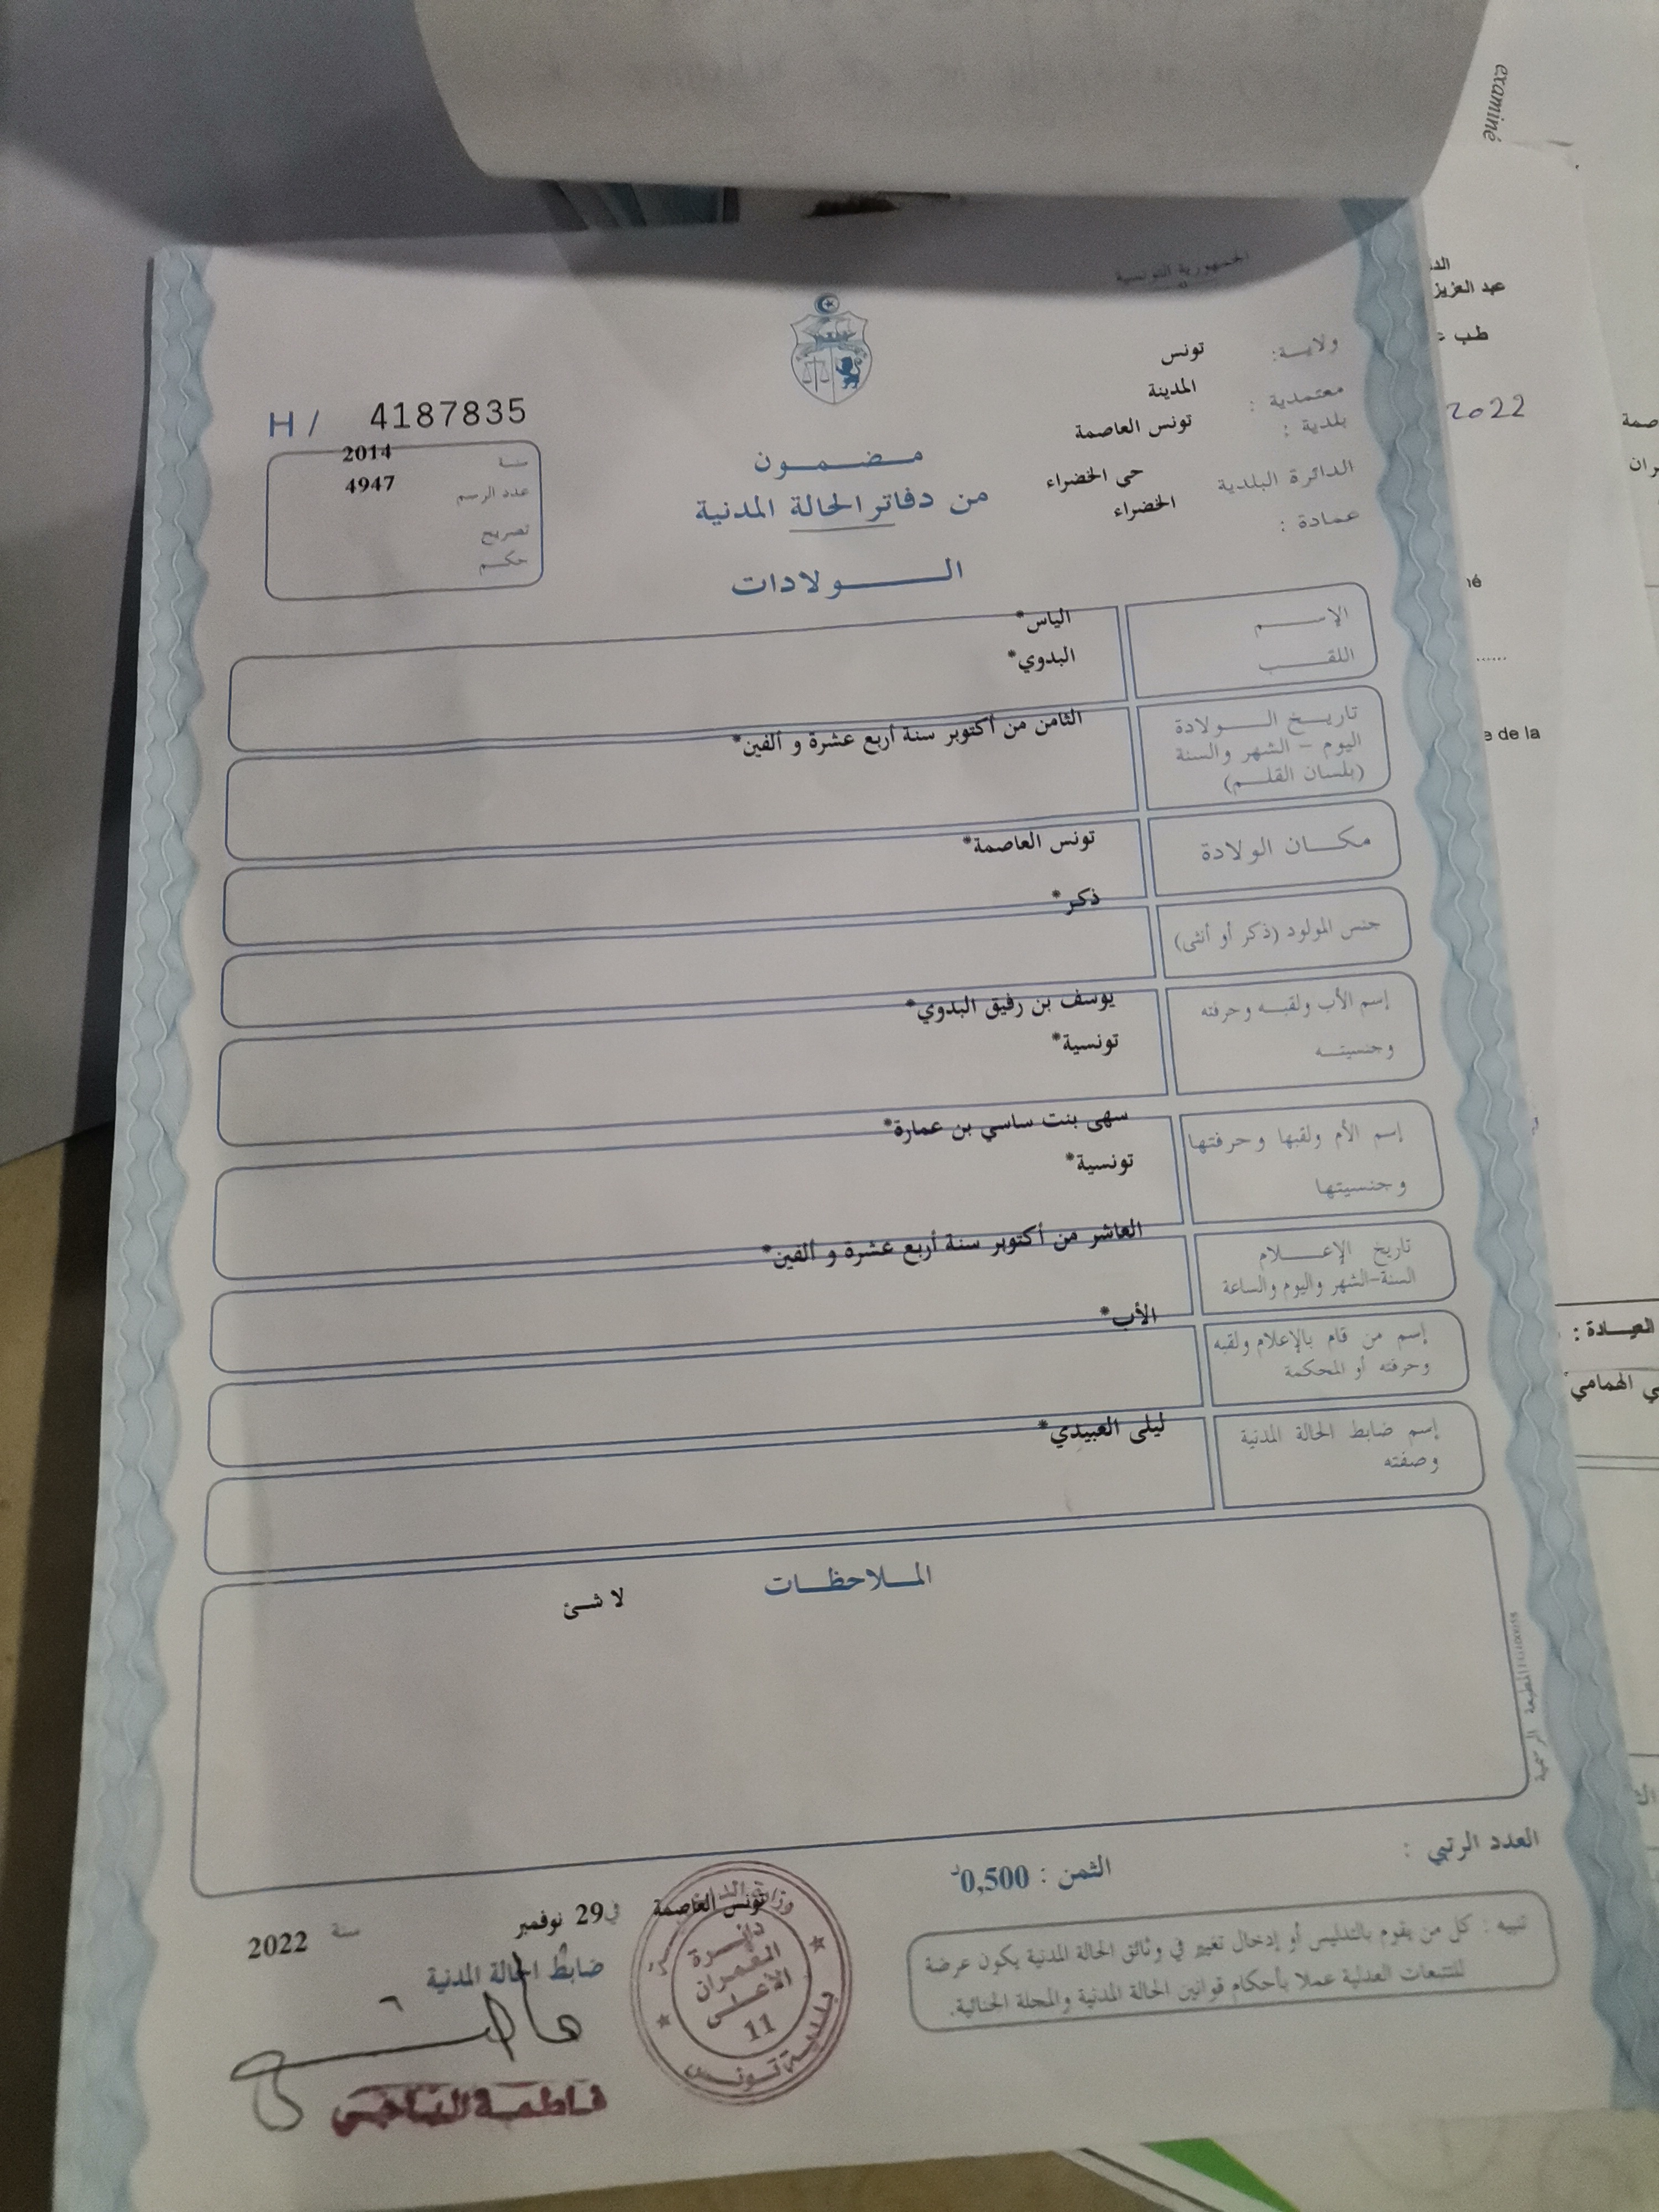 examiné
الجمهورية التونسية
ولايـــة: تونس
معتمدية : المدينة
بلدية : تونس العاصمة
الدائرة البلدية حي الخضراء
عمادة : الخضراء
H / 4187835
سنة 2014
عدد الرسم 4947
تصريح
حكـــم
مـضــمــون
من دفاتر الحالة المدنية
الـــولادات
الإســـم الياس*
اللقـــب البدوي*
تاريـــخ الـــولادة الثامن من أكتوبر سنة أربع عشرة و ألفين*
اليوم – الشهر والسنة
(بلسان القلـــم)
مكـــان الولادة تونس العاصمة*
جنس المولود (ذكر أو أنثى) ذكر*
إسم الأب ولقبـــه وحرفته يوسف بن رفيق البدوي*
وجنسيتـــه تونسية*
إسم الأم ولقبها وحرفتها سهى بنت ساسي بن عمارة*
وجنسيتها تونسية*
تاريخ الإعـــلام العاشر من أكتوبر سنة أربع عشرة و ألفين*
السنة-الشهر واليوم والساعة
إسم من قام بالإعلام ولقبه الأب*
وحرفته أو المحكمة
إسم ضابط الحالة المدنية ليلى العبيدي*
وصفته
المـــلاحظـــات
لا شئ
المطبعة الرسمية
العدد الرتبي :
الثمن : 0,500د
تونس العاصمة في 29 نوفمبر سنة 2022
ضابط الحالة المدنية
تنبيه : كل من يقوم بالتدليس أو إدخال تغيير في وثائق الحالة المدنية يكون عرضة
للتتبعات العدلية عملا بأحكام قوانين الحالة المدنية والمجلة الجنائية.
دائـــرة
العمران
الأعلـــى
11
بلدية تونس
عبد العزيز
طب
2022
e de la
العيـــادة :
الهمامي